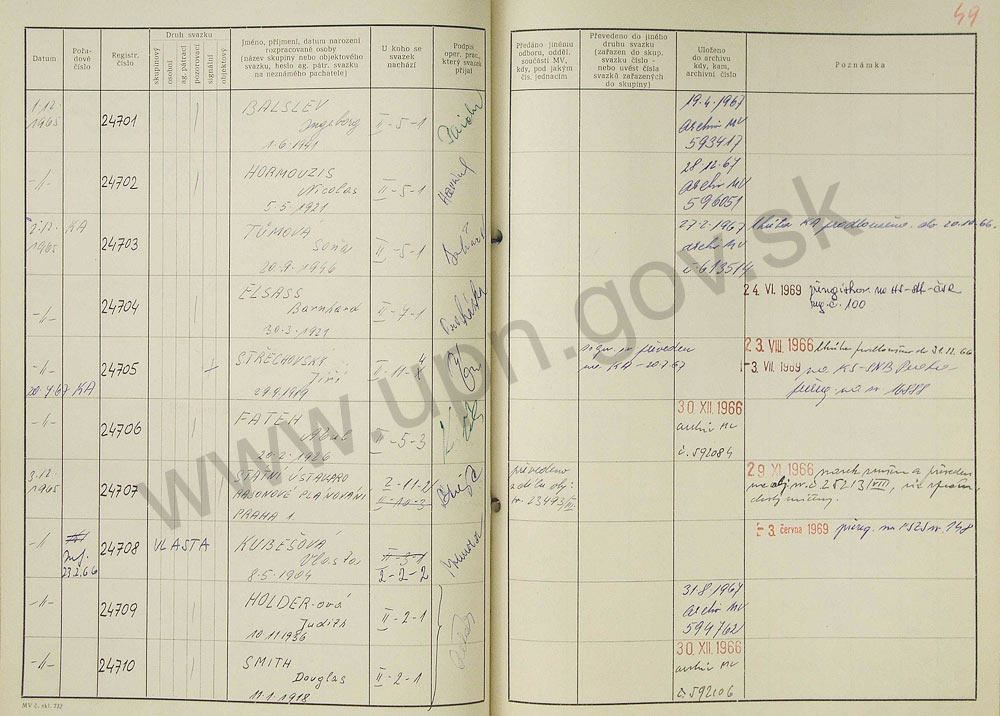 49
Druh svazku
Datum
Požadové číslo
Registr. číslo
skupinový
osobní
ag. pátrací
pozorovací
signální
objektový
Jméno, příjmení, datum narození
rozpracované osoby
(název skupiny nebo objektového
svazku, heslo ag. pátr. svazku
na neznámého pachatele)
U koho se
svazek
nachází
Podpis
oper. prac.,
který svazek
přijal
Předáno jinému
odboru, odděl.
součásti MV,
kdy, pod jakým
čís. jednacím
Převedeno do jiného
druhu svazku
(zařazen do skup.
svazku číslo -
nebo uvést čísla
svazků zařazených
do skupiny)
Uloženo
do archivu
kdy, kam,
archivní číslo
Poznámka
1.12. 1965
24701
BALSLEV
Ingeborg
1.6.1941
II-5-1
19.4.1967
Archiv MV
593417
-"-
24702
HORMOUZIS
Nicolas
5.5.1921
II-5-1
28.12.67
Archiv MV
596051
2.12. 1965
KA
24703
TŮMOVÁ
Soňa
20.9.1946
II-5-1
27.2.1967
archiv MV
č. 613514
lhůta KA prodloužena do 20.10.66.
-"-
24704
ELSASS
Barnhard
30.3.1921
II-7-1
24. VI. 1969
č. 100
-"-
20.7.67 KA
24705
STŘECHOVSKÝ
Jiří
29.9.1919
II-11-4
převeden
na KA - 20.7.67
23. VIII. 1966 lhůta prodloužena do 31.12.66
1-3. VII. 1969 na KS-SNB
-"-
24706
FATEH
Abul
20.2.1926
II-5-3
30 XII. 1966
archiv MV
č. 592084
3.12. 1965
24707
STÁTNÍ ÚSTAV PRO
RAJONOVÉ PLÁNOVÁNÍ
PRAHA 1.
2-11-2
II-10-3
převedeno
29. XI. 1966
č. 25213/VIII
-"-
23.2.66
24708
VLASTA
KUBEŠOVA
Vlasta
8.5.1904
II-3-1
2-2-2
-3. června 1969
-"-
24709
HOLDER-ová
Judith
10.11.1936
II-2-1
31.8.1967
Archiv MV
594762
-"-
24710
SMITH
Douglas
11.1.1918
II-2-1
30 XII. 1966
archiv MV
č. 592106
MV č. skl. 732
www.upn.gov.sk